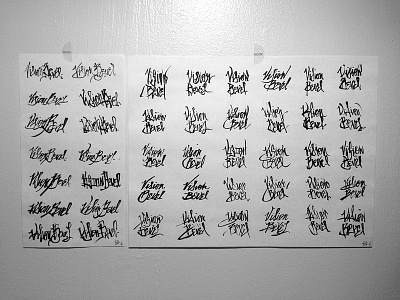 Vision Bevel Vision Bevel
Vision Bevel Vision Bevel
Vision Bevel Vision Bevel
Vision Bevel Vision Bevel
Vision Bevel Vision Bevel
Vision Bevel Vision Bevel
Vision Bevel Vision Bevel
Vision Vision Vision Vision Vision Vision
Bevel Bevel Bevel Bevel Bevel Bevel
Vision Vision Vision Vision Vision Vision
Bevel Bevel Bevel Bevel Bevel Bevel
Vision Vision Vision Vision Vision Vision
Bevel Bevel Bevel Bevel Bevel Bevel
Vision Vision Vision Vision Vision Vision
Bevel Bevel Bevel Bevel Bevel Bevel
Vision Vision Vision Vision Vision Vision
Bevel Bevel Bevel Bevel Bevel Bevel